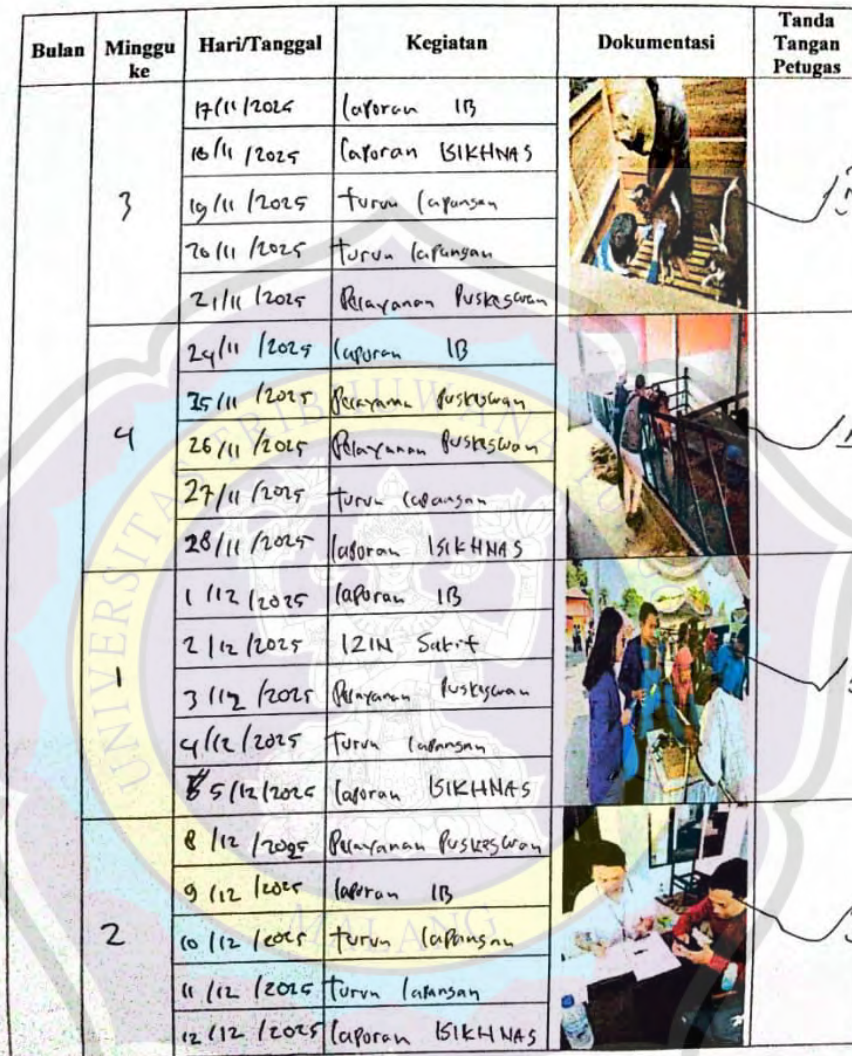 Bulan Minggu ke Hari/Tanggal Kegiatan Dokumentasi Tanda Tangan Petugas
3
17/11/2025 laporan IB
18/11/2025 laporan ISIKHNAS
19/11/2025 turun lapangan
20/11/2025 turun lapangan
21/11/2025 Pelayanan Puskeswan
4
24/11/2025 laporan IB
25/11/2025 Pelayanan Puskeswan
26/11/2025 Pelayanan Puskeswan
27/11/2025 turun lapangan
28/11/2025 laporan ISIKHNAS
1
1/12/2025 laporan IB
2/12/2025 IZIN Sakit
3/12/2025 Pelayanan Puskeswan
4/12/2025 turun lapangan
5/12/2025 laporan ISIKHNAS
2
8/12/2025 Pelayanan Puskeswan
9/12/2025 laporan IB
10/12/2025 turun lapangan
11/12/2025 turun lapangan
12/12/2025 laporan ISIKHNAS
UNIVERSITAS TRIBHUWANA
MALANG